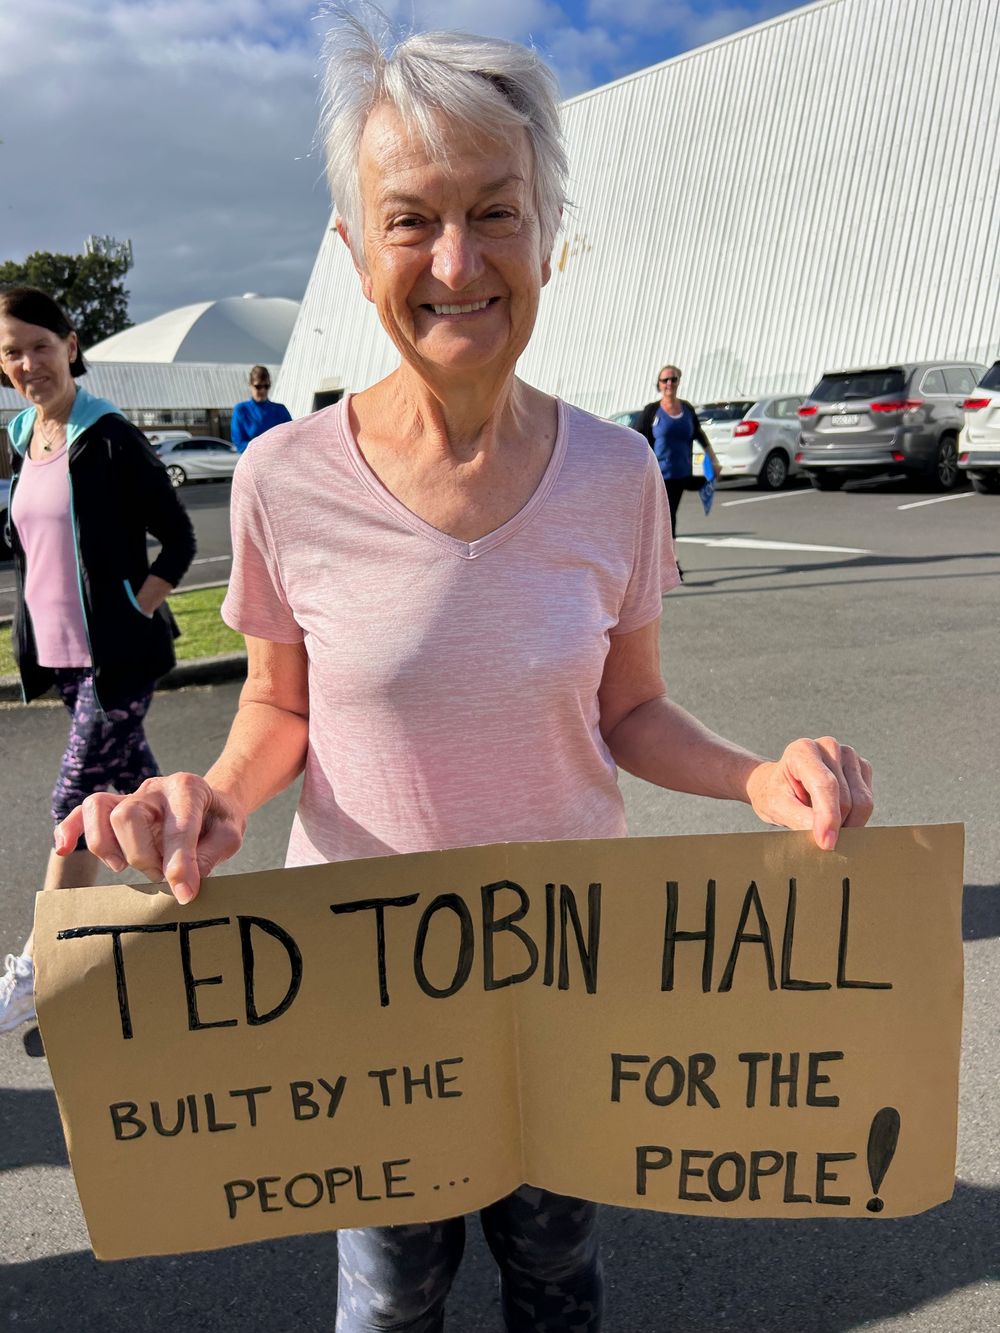 TED TOBIN HALL
BUILT BY THE
PEOPLE...
FOR THE
PEOPLE!